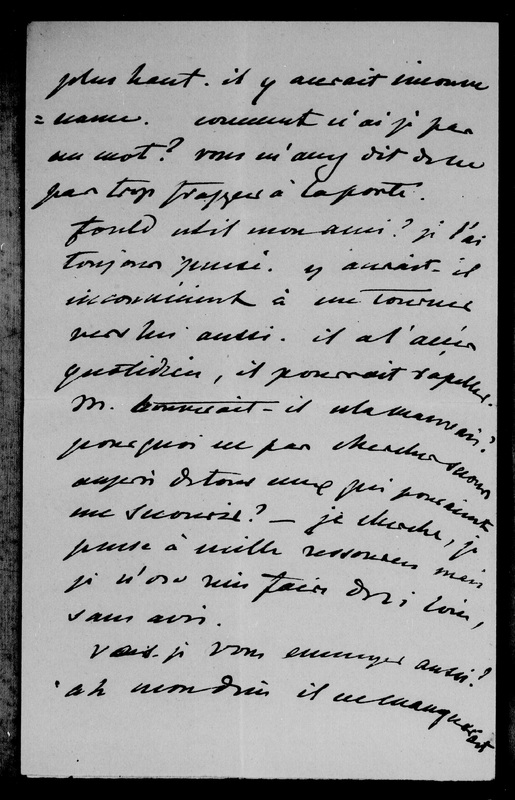 plus haut. il y aurait inconve
=nance. comment n'ai je pas
un mot? vous m'avez dit de ne
pas trop frapper à la porte.
Fould est il mon ami? je l'ai
toujours pensé. y aurait-il
inconvénient à me tourner
vers lui aussi. il a l'accès
quotidien, il pourrait rappeler.
M. trouverait-il cela mauvais?
pourquoi ne pas chercher secours
auprès de tous ceux qui pouraient
me secourir? — je cherche, je
pense à mille ressources mais
je n'ose rien faire de si loin,
sans avis.
vais-je vous ennuyer aussi?
ah mon dieu il ne manquerait